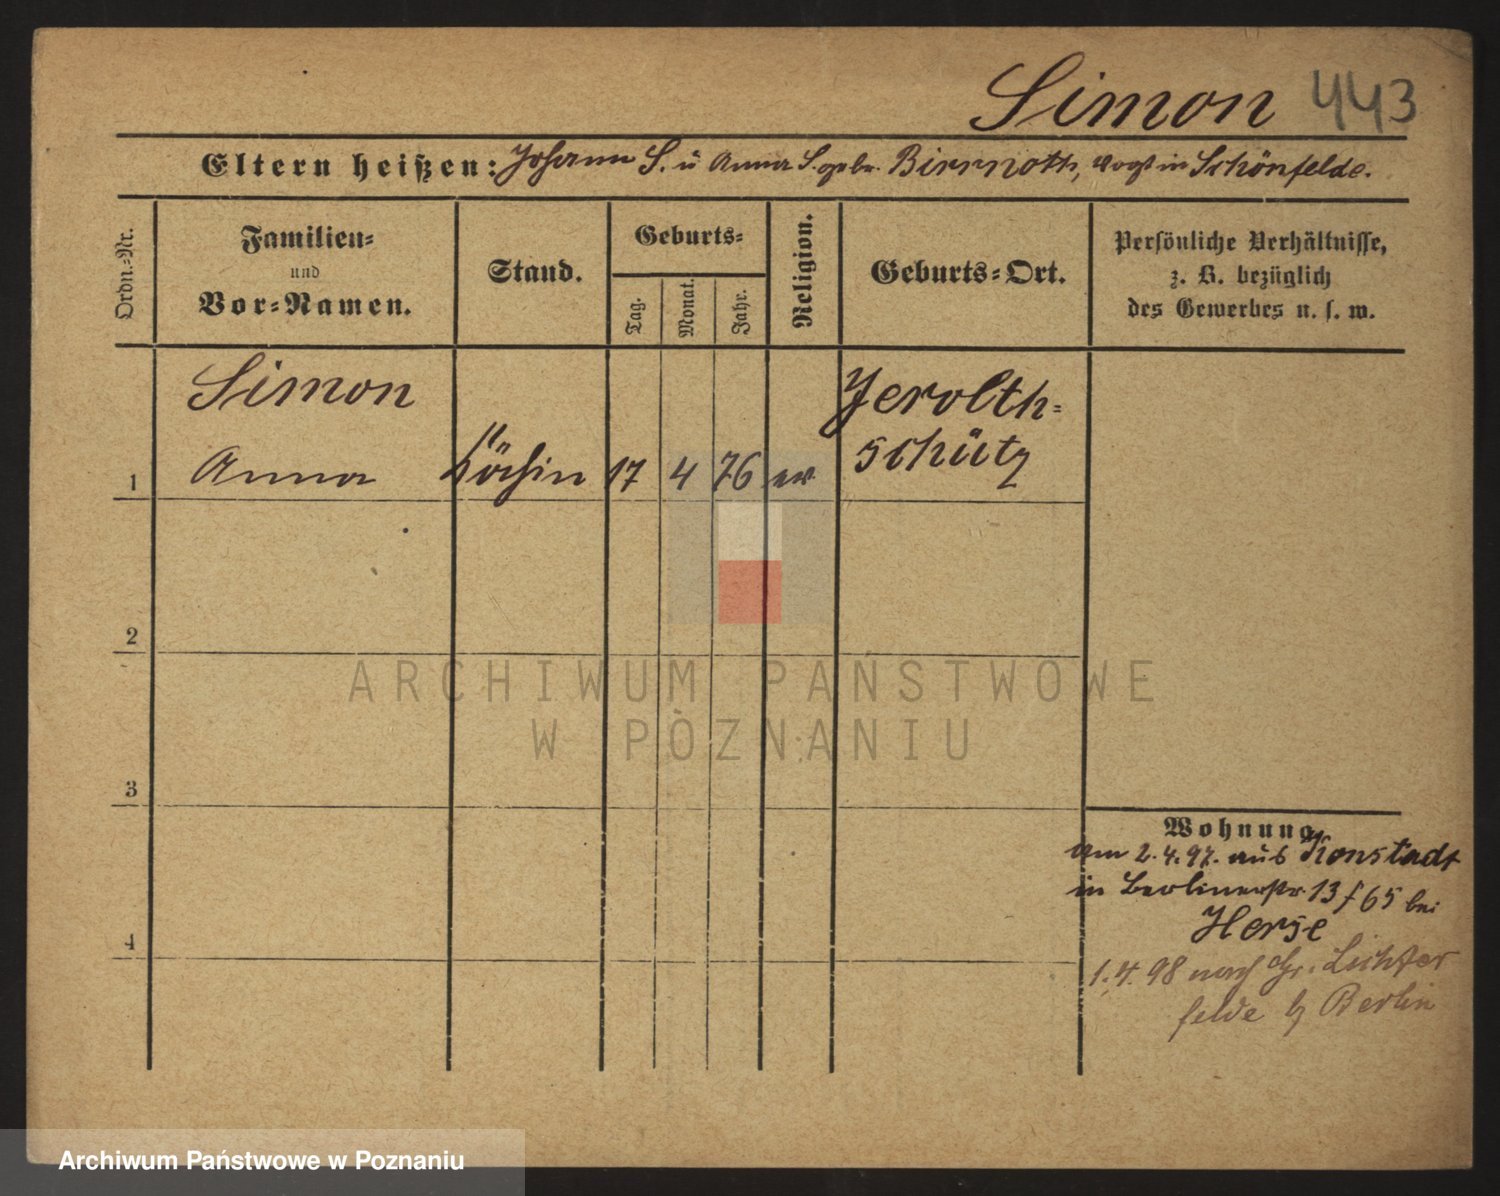 Simon 443
Eltern heißen: Johann S. u Anna S. gebr. Birrnoth, Vogt in Schönfelde.
Ordn.-Nr.
Familien-
und
Vor-Namen.
Stand.
Geburts-
Tag.
Monat.
Jahr.
Religion.
Geburts-Ort.
Persönliche Verhältnisse,
z. B. bezüglich
des Gewerbes u. s. w.
Simon
Jerolth-
1 Anna Köchin 17 4 76 ev schütz
2
ARCHIWUM PAŃSTWOWE
W POZNANIU
3
4
Wohnung
am 2.4.97. aus Konstadt
in Berlinerstr. 13 f 65 bei
Herse
1.4.98 nach Gr. Lichter
felde b Berlin
Archiwum Państwowe w Poznaniu